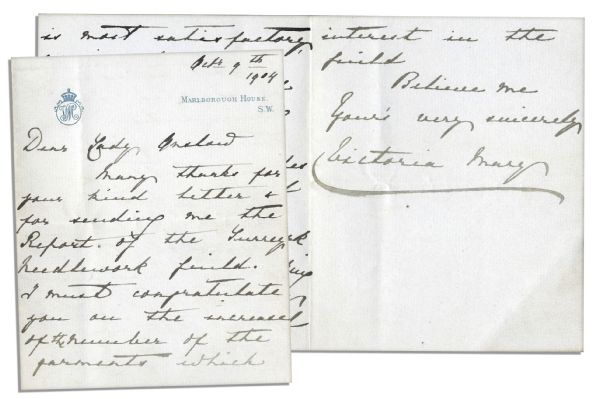 Octr. 9th
1904
MARLBOROUGH HOUSE.
S.W.
Dear Lady Onslow
Many thanks for
your kind letter &
for sending me the
Report. of the Surrey
Needlework fuild.
I must congratulate
you on the increased
number of the
garments which
is most satisfactory,
interest in the
fuild
Believe me
Yours very sincerely
Victoria Mary